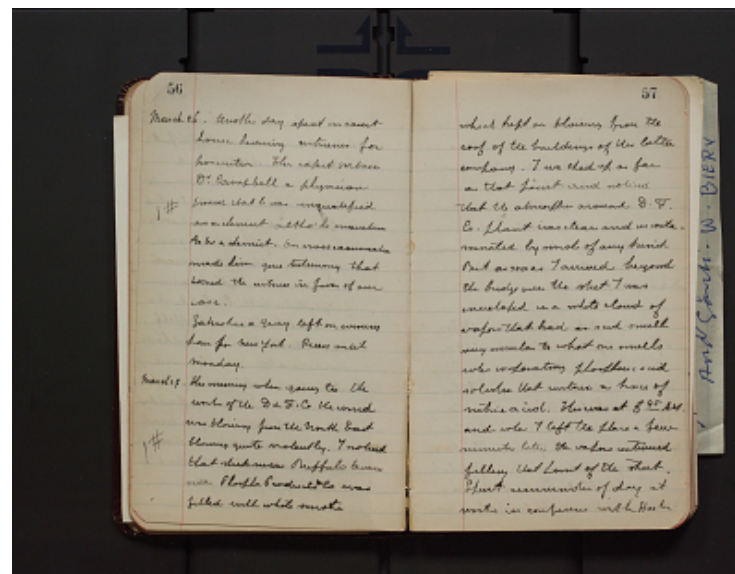 56
March 26. Another day spent in court
house hearing witnesses for
prosecution. The expert witness
Dr. Campbell a physician
proved that he was unqualified
as a chemist altho he
to be a chemist. On cross examination
made him give testimony that
turned the witness in favor of our
case.
a Gray left on evening
for New York. Recess until
Monday.
March 27 This morning when going to the
works of the D & F. Co the wind
was blowing from the North East
blowing quite violently. I noticed
that Buffalo
near Phosphate Products Co was
filled with white smoke
1#
1#
57
which kept on blowing from the
roof of the buildings of the latter
company. I walked up as far
as that point and noticed
that the atmosphere around D. F.
Co. plant was clear and uncontaminated
by smoke of any kind.
But as soon as I arrived beyond
the bridge over the street I was
enveloped in a white cloud of
vapor that had an acid smell
very similar to what one smells
when evaporating phosphoric acid
solution that contains a trace of
nitric acid. This was at 8 45 A.M.
and when I left the place a few
minutes later the vapors continued
filling that part of the street.
Spent remainder of day at
works in conference with
And Günth. W. BIERY